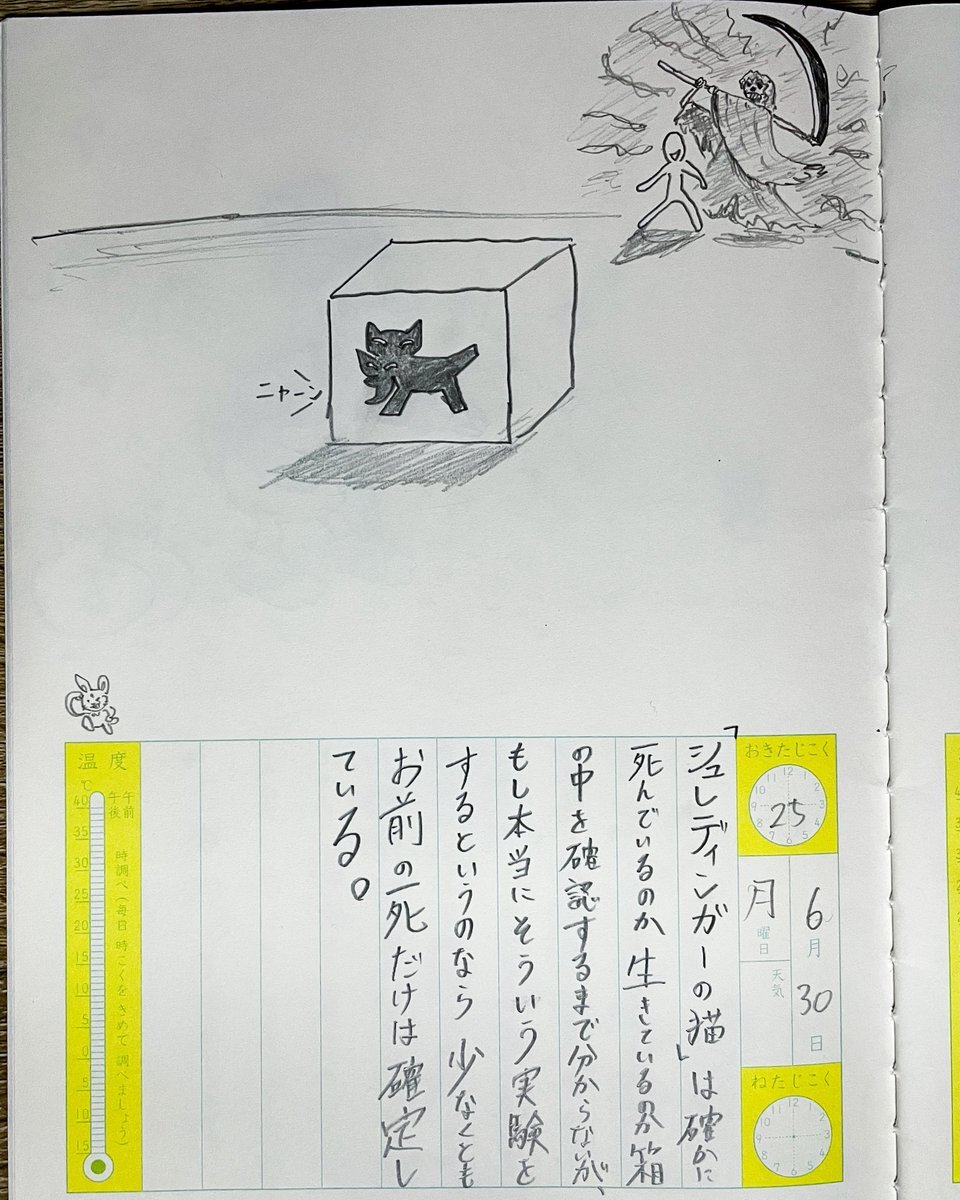 ニャーン
おきたじこく
12
1
2
3
4
5
6
7
8
9
10
11
25
6
月
30
日
月
曜日
天気
ねたじこく
12
1
2
3
4
5
6
7
8
9
10
11
「シュレディンガーの猫」は確かに
死んでいるのか生きているのか箱
の中を確認するまで分からないが、
もし本当にそういう実験を
するというのなら少なくとも
お前の死だけは確定し
ている。
温度
℃
午前
午後
時調べ(毎日 時こくをきめて 調べましょう)
40
35
30
25
20
15
10
5
0
5
10
15